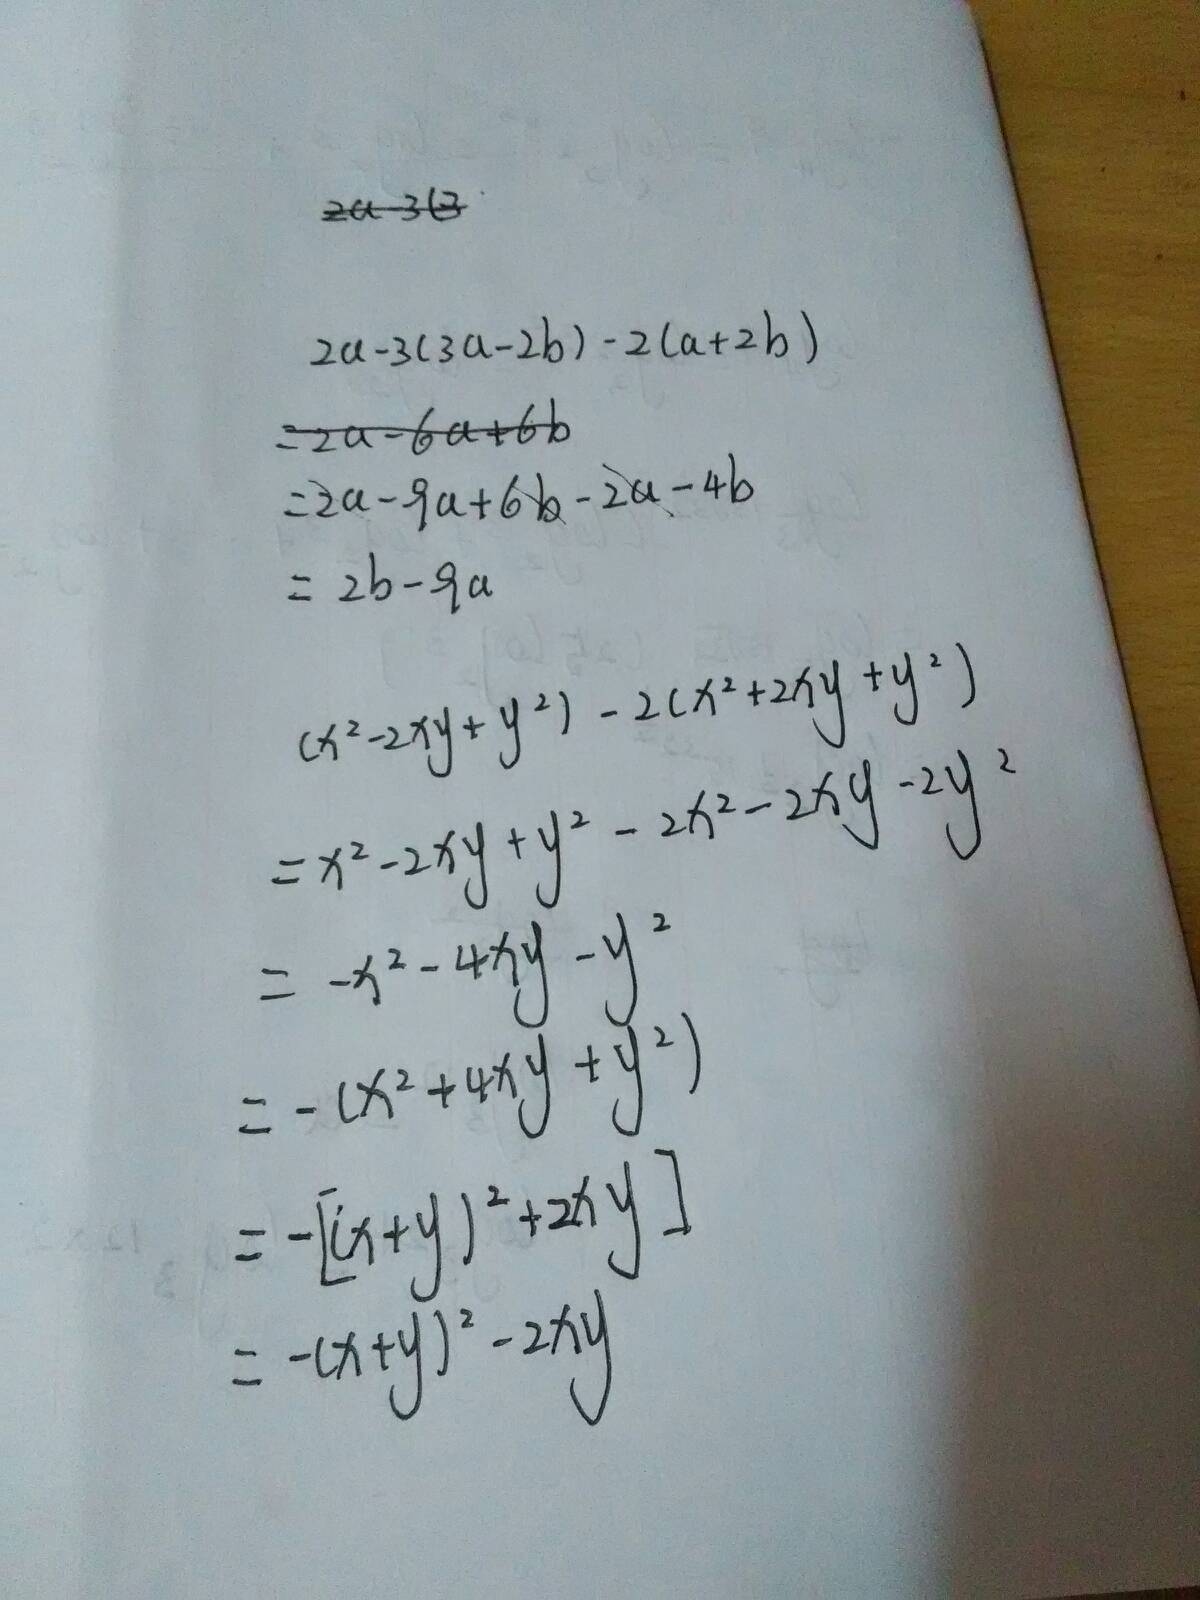 2a-3(3
2a-3(3a-2b)-2(a+2b)
=2a-6a+6b
=2a-9a+6b-2a-4b
=2b-9a
(x²-2xy+y²)-2(x²+2xy+y²)
=x²-2xy+y²-2x²-2xy-2y²
=-x²-4xy-y²
=-(x²+4xy+y²)
=-[(x+y)²+2xy]
=-(x+y)²-2xy